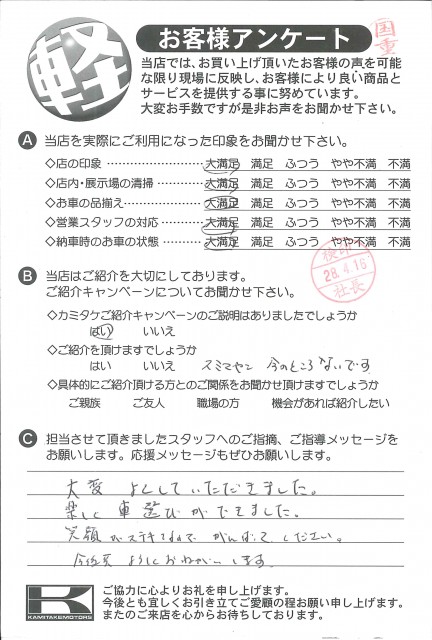 軽
お客様アンケート
国重
当店では、お買い上げ頂いたお客様の声を可能
な限り現場に反映し、お客様により良い商品と
サービスを提供する事に努めています。
大変お手数ですが是非お声をお聞かせ下さい。
A 当店を実際にご利用になった印象をお聞かせ下さい。
◇店の印象 大満足 満足 ふつう やや不満 不満
◇店内・展示場の清掃 大満足 満足 ふつう やや不満 不満
◇お車の品揃え 大満足 満足 ふつう やや不満 不満
◇営業スタッフの対応 大満足 満足 ふつう やや不満 不満
◇納車時のお車の状態 大満足 満足 ふつう やや不満 不満
28.4.16
社長
B 当店はご紹介を大切にしてあります。
ご紹介キャンペーンについてお聞かせ下さい。
◇カミタケご紹介キャンペーンのご説明はありましたでしょうか
はい いいえ
◇ご紹介を頂けますでしょうか
はい いいえ スミマセン 今のところないです
◇具体的にご紹介頂ける方とのご関係をお聞かせ頂けますでしょうか
ご親族 ご友人 職場の方 機会があれば紹介したい
C 担当させて頂きましたスタッフへのご指摘、ご指導メッセージを
お願いします。応援メッセージもぜひお願いします。
大変 よくしていただきました。
楽しく 車選びができました。
笑顔がステキなので がんばって ください。
今後共 よろしくおねがいします。
K
KAMITAKEMOTORS
ご協力に心よりお礼を申し上げます。
今後とも宜しくお引き立てご愛顧の程お願い申し上げます。
またのご来店を心からお待ちしております。